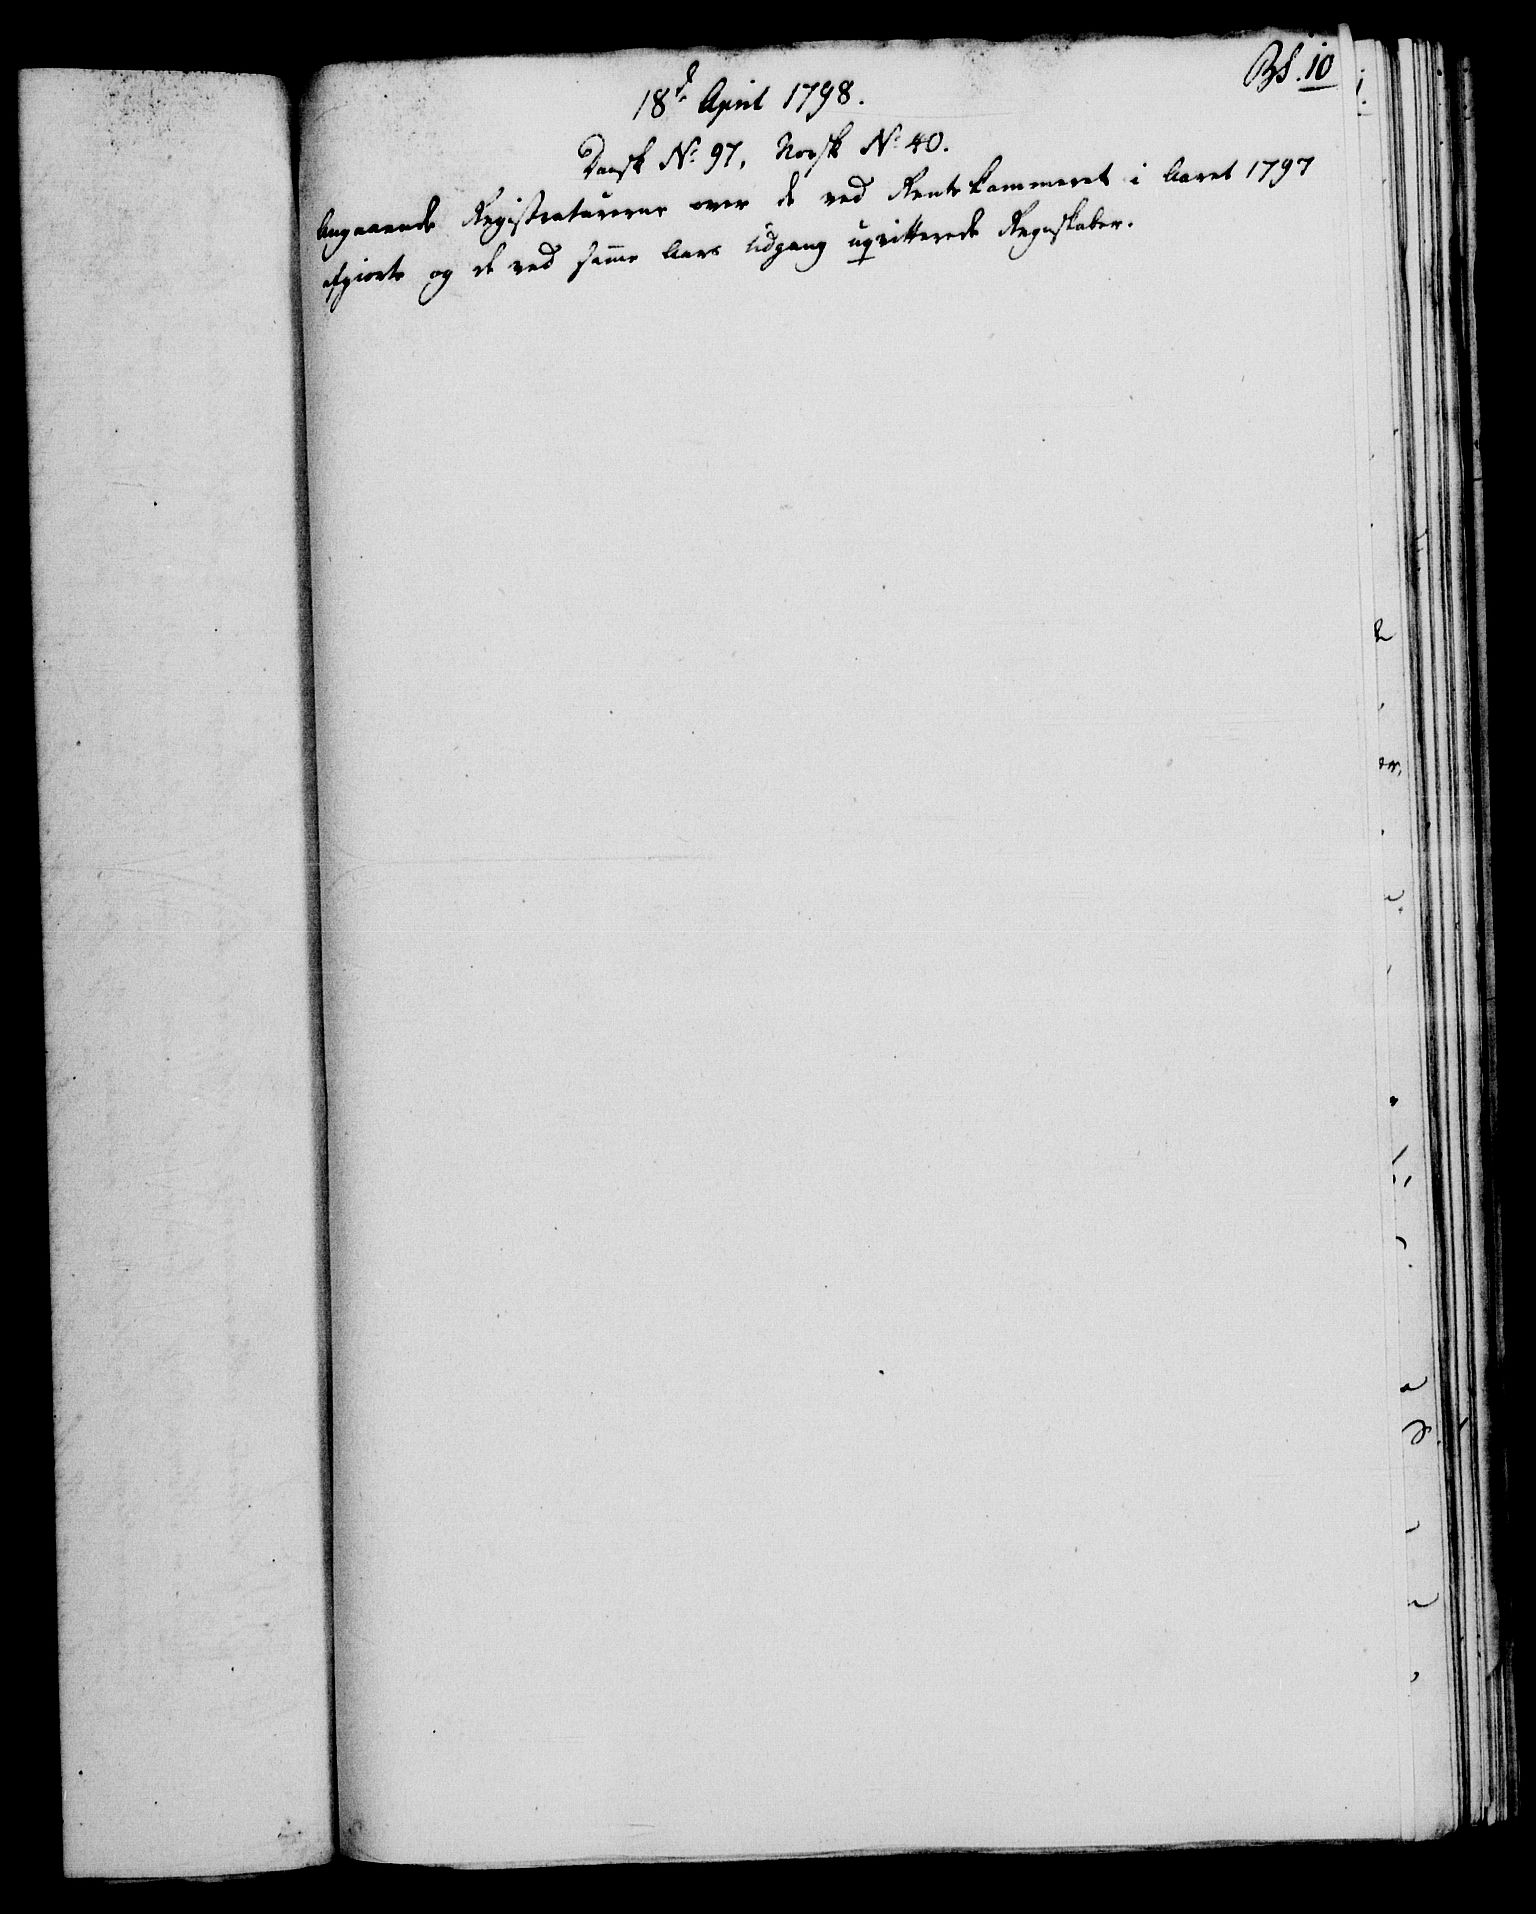 Bs. 10
18d April 1798.
Dansk No 97, Norsk No 40.
Angaaende Registraturerne over de ved Rentekammeret i Aaret 1797
afgiorte og de ved samme Aars Udgang uqvitterede Regnskaber.